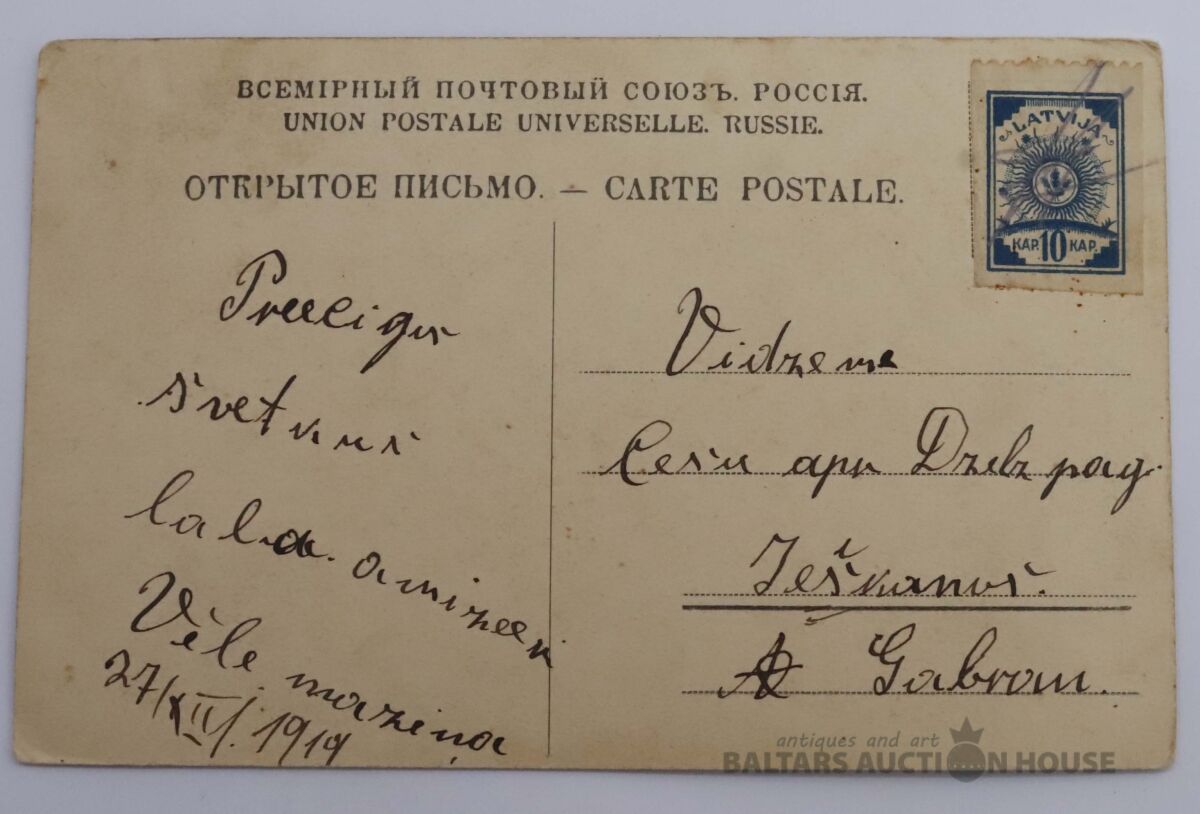 ВСЕМІРНЫЙ ПОЧТОВЫЙ СОЮЗЪ. РОССІЯ.
UNION POSTALE UNIVERSELLE. RUSSIE.
ОТКРЫТОЕ ПИСЬМО. — CARTE POSTALE.
LATVIJA
KAP. 10 KAP.
Preecigus
svetkus
laba
Vēle maziņa
27/XII/. 1919
Vidzeme
Cesu apr Dzelz pag.
Ješkanos.
A Gabran.
antiques and art
BALTARS AUCTION HOUSE